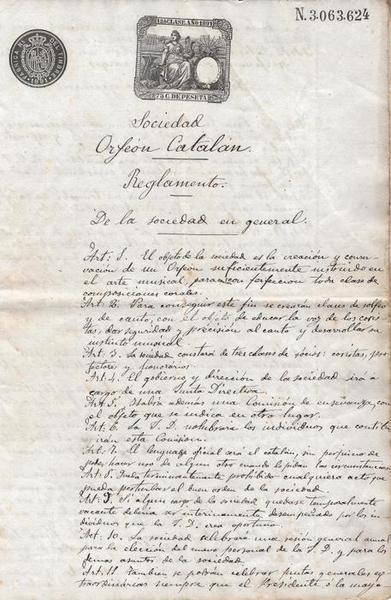 N. 3.063.624
12ª CLASE AÑO 1891
75 C. DE PESETA
Sociedad
Orfeón Catalán.
Reglamento.
De la sociedad en general.
Art: 1. El objeto de la sociedad es la creación y conser-
vación de un Orfeón suficientemente instruido en
el arte musical, para perfección toda clase de
composiciones corales.
Art 2. Para conseguir este fin se crearán clases de solfeo
y de canto, con el objeto de educar la voz de los coris-
tas, dar seguridad y precisión al canto y desarrollar su
instinto musical.
Art. 3. La sociedad constará de tres clases de sócios: coristas, pro-
tectores y honorarios.
Art. 4. El gobierno y dirección de la sociedad irá á
cargo de una Junta Directiva.
Art. 5. Habrá además una Comisión de enseñanza, con
el objeto que se indica en otro lugar.
Art. 6. La J. D. nombrará los individuos que constitui-
rán esta Comisión.
Art. 7. El lenguaje oficial será el catalán, sin perjuicio de
poder hacer uso de algún otro cuando lo pidan las circunstancias.
Art. 8. Queda terminantemente prohibido cualquier acto que
pueda perturbar el buen orden de la sociedad.
Art. 9. Si algún cargo de la sociedad quedase temporalmente
vacante deberá ser interinamente desempeñado por los in-
dividuos que la J. D. crea oportuno.
Art. 10. La sociedad celebrará una sesión general anual
para la elección del nuevo personal de la J. D. y para los
demas asuntos de la sociedad.
Art. 11. Tambien se podrán celebrar juntas generales ex-
traordinarias siempre que el Presidente ó la mayo-